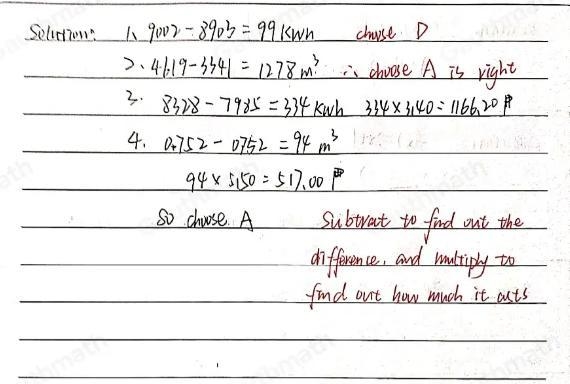 Solution: 1. 9002 - 8903 = 99 kwh choose D
2. 4619 - 3341 = 1278 m³ ∴ choose A is right
3. 8328 - 7985 = 334 kwh 334 × 3.40 = 1166.20 ₱
4. 0.752 - 0752 = 94 m³
94 × 5.50 = 517.00 ₱
So choose A Subtract to find out the
difference, and multiply to
find out how much it costs